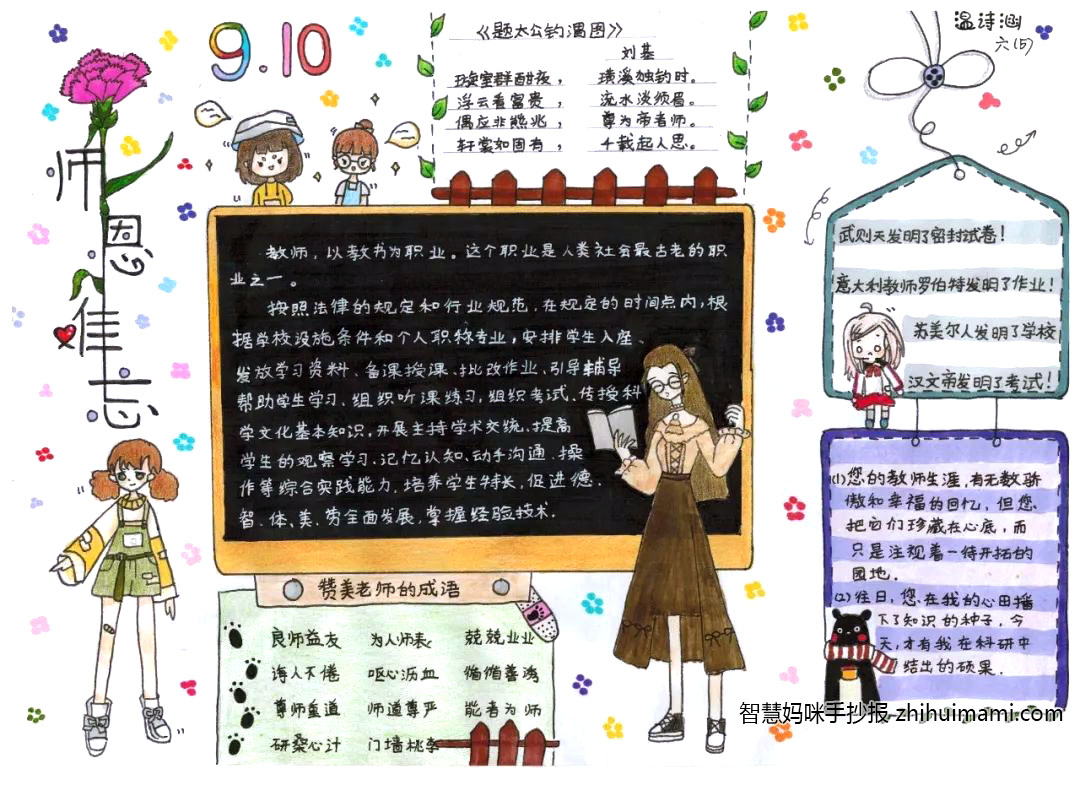 9.10
师恩难忘
《题太公钓渭图》
刘基
璇室群酣夜， 璜溪独钓时。
浮云看富贵， 流水淡须眉。
偶应非熊兆， 尊为帝者师。
轩裳如固有， 千载起人思。
温诗涵
六(5)
教师，以教书为职业。这个职业是人类社会最古老的职
业之一。
按照法律的规定和行业规范，在规定的时间点内，根
据学校设施条件和个人职称专业，安排学生入座、
发放学习资料、备课授课、批改作业、引导辅导
帮助学生学习、组织听课练习，组织考试、传授科
学文化基本知识，开展主持学术交统、提高
学生的观察学习、记忆认知、动手沟通、操
作等综合实践能力，培养学生特长、促进德、
智、体、美、劳全面发展，掌握经验技术.
武则天发明了密封试卷!
意大利教师罗伯特发明了作业!
苏美尔人发明了学校
汉文帝发明了考试!
(1)您的教师生涯，有无数骄
傲和幸福的回忆，但您
把它们珍藏在心底，而
只是注视着一待开拓的
园地.
(2)往日，您在我的心田播
下了知识的种子，今
天，才有我在科研中
结出的硕果.
赞美老师的成语
良师益友 为人师表 兢兢业业
诲人不倦 呕心沥血 循循善诱
尊师重道 师道尊严 能者为师
研桑心计 门墙桃李
智慧妈咪手抄报-zhihuimami.com